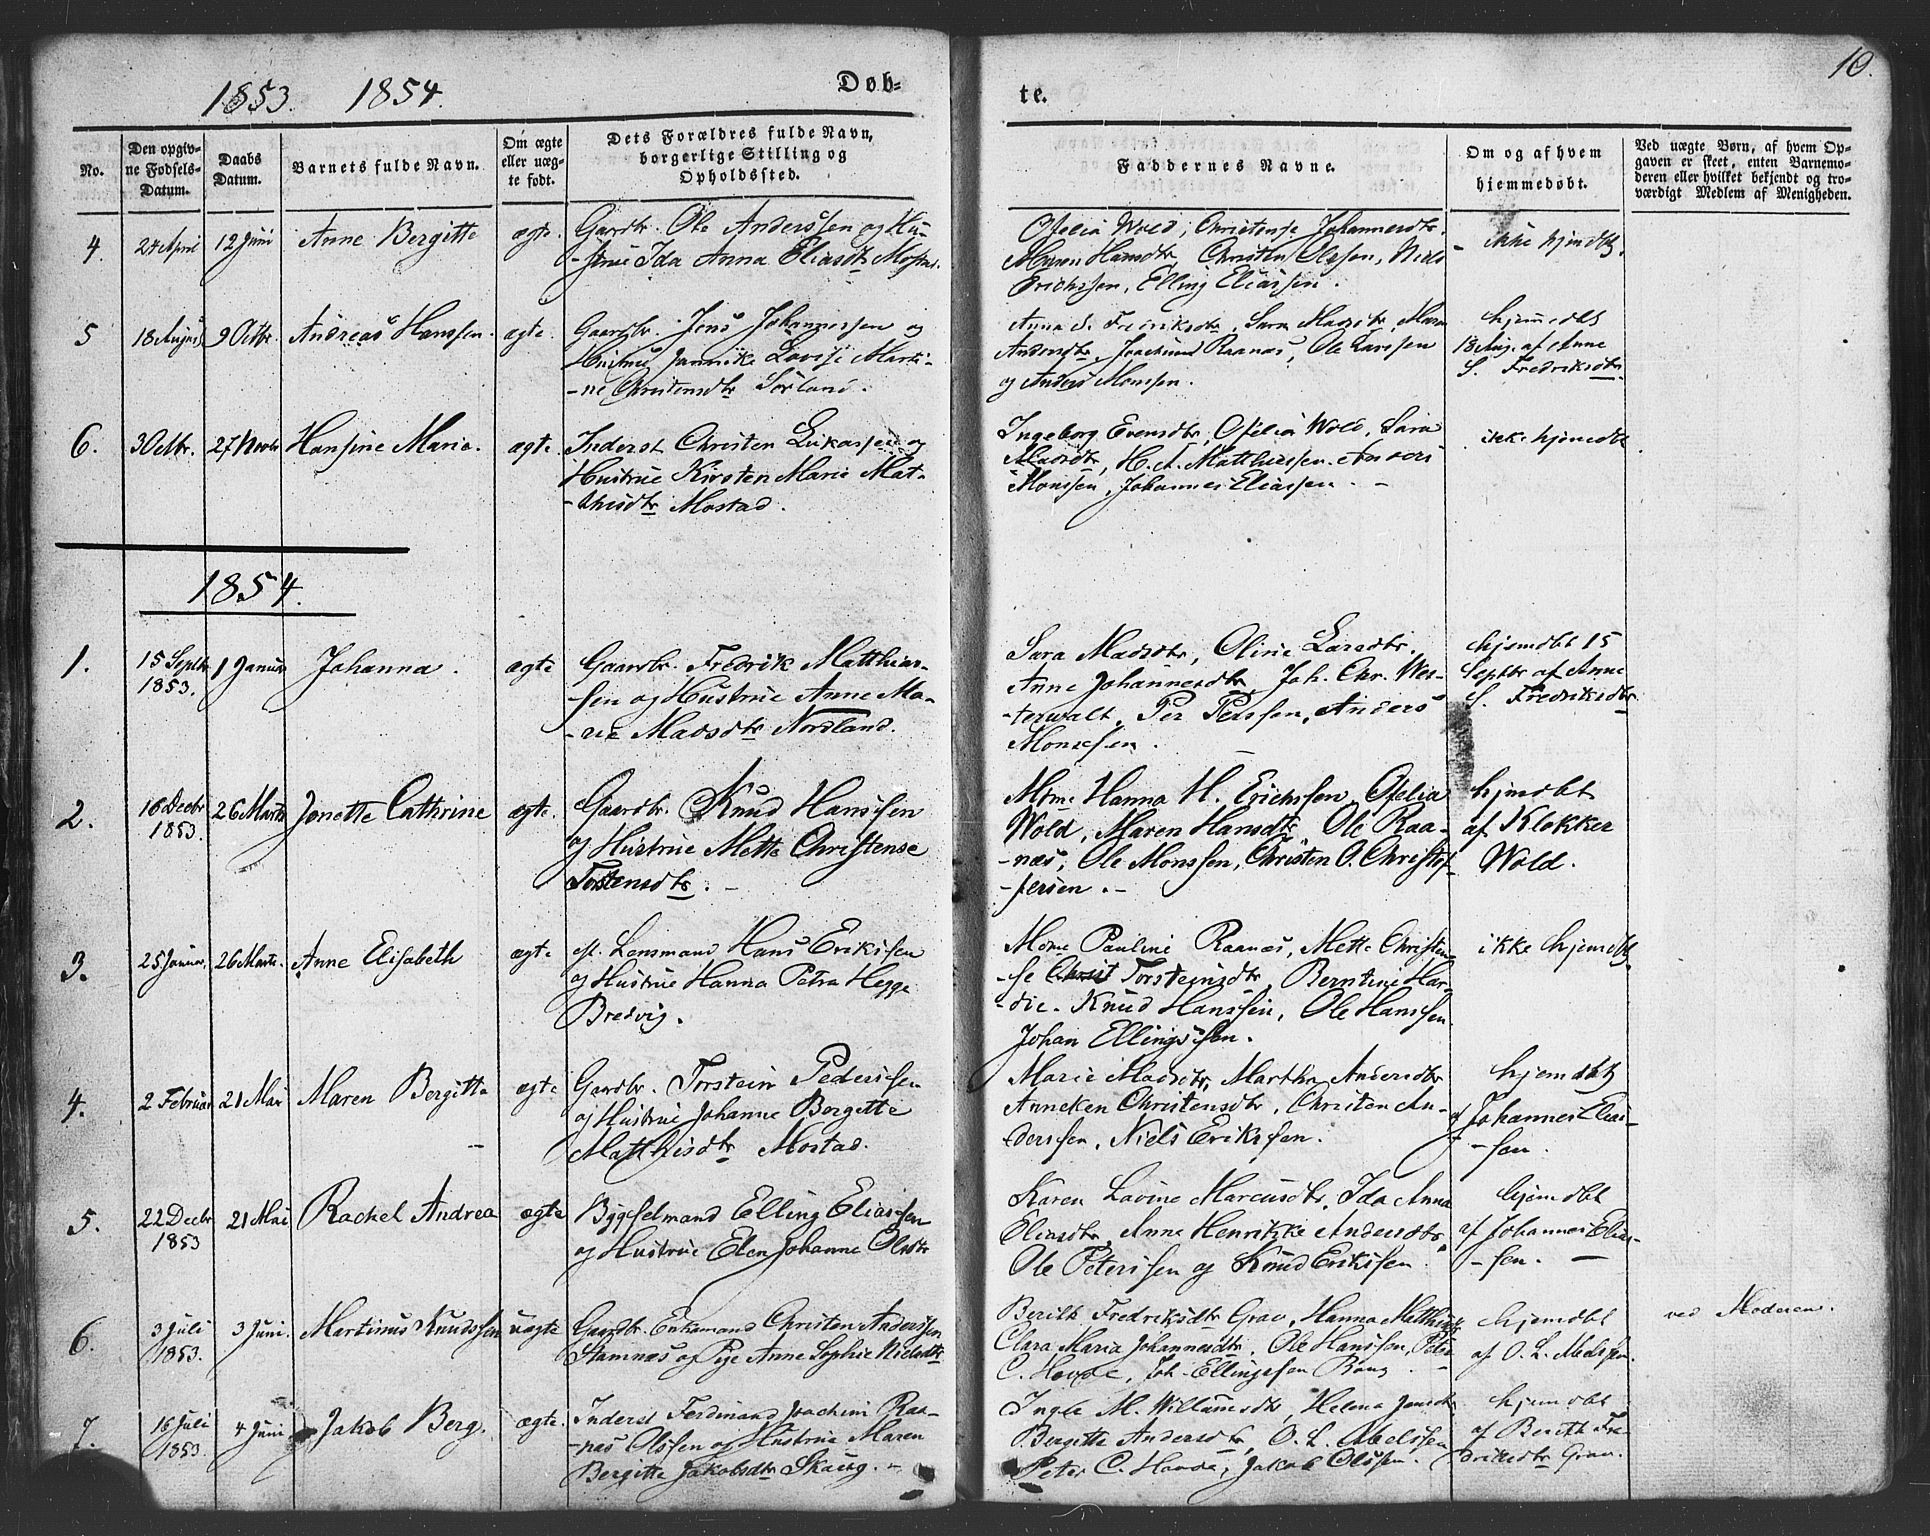 1853. 1854. Døb-
te. 10.
No.
Den opgiv-
ne Fødsels-
Datum.
Daabs
Datum.
Barnets fulde Navn.
Om ægte
eller uæg-
te født.
Dets Forældres fulde Navn,
borgerlige Stilling og
Opholdssted.
Faddernes Navne.
Om og af hvem
hjemmedøbt.
Ved uægte Børn, af hvem Op-
gaven er skeet, enten Barnemo-
deren eller hvilket bekjendt og tro-
værdigt Medlem af Menigheden.
4. 24 April 12 Juni Anne Bergitte ægte.
Gaardbr. Ole Anderssen og Hu-
-strue Ida Anna Eliasdtr
Ofelia Wold, Christense Johannesdtr.
Maren Hansdtr, Christen Olssen, Niels
Erichssen, Elling Eliassen.
ikke hjemdbt.
5 18 August 9 Octbr. Andreas Hanssen. ægte.
Gaardbr. Jens Johannessen og
Hustrue Jannike Lovise Marti-
-ne Christensdtr Sørland.
Anna S. Fredriksdtr, Sara Madsdtr, Maren
Andersdtr, Joachim Raanæs, Ole Larssen
og Anders Monssen.
hjemdbt
18 Aug. af Anne
S. Fredriksdtr
6. 3 Octbr. 27 Novbr Hansine Marie. ægte.
Inderst Christen Lukassen og
Hustrue Kirsten Marie Mat-
-thisdtr Mostad.
Ingeborg Evensdtr, Ofelia Wold, Sara
Madsdtr, H. A. Matthiessen. Anders
Monssen, Johannes Eliassen. -
ikke hjemdbt
1854.
1. 15 Septbr 1 Januar Johanna. ægte
1853.
Gaardbr. Fredrik Matthias-
-sen og Hustrue Anne Ma-
-rie Madsdtr Nordland.
Sara Madsdtr, Oline Larsdtr,
Anne Johannesdtr, Joh. Chr. Wes-
-terwalt, Per Perssen, Anders
Monssen.
hjemdbt 15
Septbr af Anne
S. Fredriksdtr
2. 16 Decbr 26 Marts Jonette Cathrine ægte.
1853.
Gaardbr. Knud Hanssen
og Hustrue Mette Christense
Torstensdtr. -
Mdme Hanna H. Erichssen, Ofelia
Wold, Maren Hansdtr, Ole Raa-
-næs, Ole Monssen, Christen O. Christof-
-fersen. -
hjemdbt
af Klokker
Wold.
3. 25 Januar. 26 Marts. Anne Elisabeth ægte.
Lensmand Hans Erikssen
og Hustrue Hanna Petra Hegge
Bredvig.
Mdme Pauline Raanæs, Mette Christen-
-se Christ Torsteinsdtr, Berntine Har-
-die. Knud Hanssen, Ole Hanssen.
Johan Ellingssen.
ikke hjemdbt.
4. 2 Februar 21 Mai Maren Bergitte ægte
Gardbr. Torstein Pederssen
og Hustrue Johanne Bergitte
Matthisdtr Mostad.
Marie Madsdtr, Martha Andersdtr
Anneken Christensdtr, Christen An-
-derssen, Niels Erikssen.
hjemdbt
af Johannes Elias-
-sen.
5. 22 Decbr 21 Mai Rachel Andrea ægte
1853
Bygselmand Elling Eliassen
og Hustrue Elen Johanne Olsdtr
Karen Lovine Marcusdtr, Ida Anna
Eliasdtr, Anne Henrikke Andersdtr,
Ole Peterssen og Knud Erikssen.
hjemdbt
af Johannes Elias-
-sen. -
6. 3 Juli 3 Juni. Martinus Knudssen uægte
1853.
Gaardbr. Enkemand Christen Anderssen
Stamnæs og Pige Anne Sophie Nielsdtr
Berith Fredriksdtr Grav, Hanna
Clara Maria Johannesdtr, Ole Hanssen, Peter
C. Hovde, Joh. Ellingssen
hjemdbt
af O. L.
ved Moderen.
7. 16 Juli 4 Juni Jakob Berg. ægte.
1853.
Inderst Ferdinand Joachim Raa-
-næs Olssen og Hustrue Maren
Bergitte Jakobsdtr Skaug. -
M. Willumsdtr, Helena
Bergitte Andersdtr, O. L. Abelssen,
Peter C. Hovde, Jakob Olssen.
hjemdbt
af Berith Fre-
driksdtr Grav.